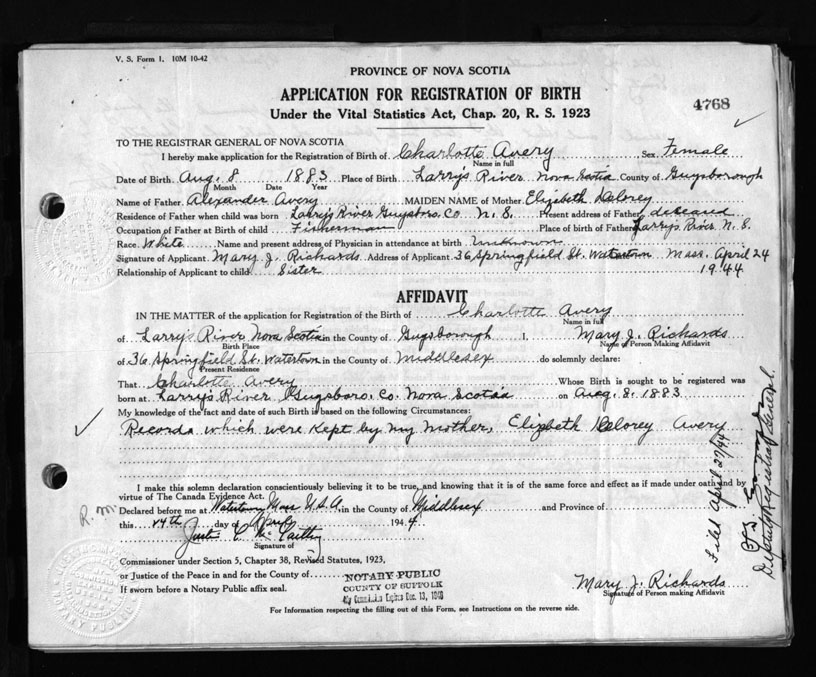 V. S. Form 1. 10M 10-42
PROVINCE OF NOVA SCOTIA
APPLICATION FOR REGISTRATION OF BIRTH
4768
Under the Vital Statistics Act, Chap. 20, R. S. 1923
TO THE REGISTRAR GENERAL OF NOVA SCOTIA
I hereby make application for the Registration of Birth of Charlotte Avery Sex Female
Name in full
Date of Birth Aug. 8 1883 Place of Birth Larry's River Nova Scotia County of Guysborough
Month Date Year
Name of Father Alexander Avery MAIDEN NAME of Mother Elizabeth Delorey
Residence of Father when child was born Larry's River Guysboro. Co N. S. Present address of Father deseased
Occupation of Father at Birth of child Fisherman Place of birth of Father Larry's River N. S.
Race White Name and present address of Physician in attendance at birth Unknown
Signature of Applicant Mary J. Richards Address of Applicant 36 Springfield St. Watertown Mass. April 24
Relationship of Applicant to child Sister 1944
AFFIDAVIT
IN THE MATTER of the application for Registration of the Birth of Charlotte Avery
Name in full
of Larry's River Nova Scotia in the County of Guysborough I, Mary J. Richards
Birth Place Name of Person Making Affidavit
of 36 Springfield St. Watertown in the County of Middlesex do solemnly declare:
Present Residence
That Charlotte Avery Whose Birth is sought to be registered was
born at Larry's River Guysboro. Co. Nova Scotia on Aug. 8. 1883
My knowledge of the fact and date of such Birth is based on the following Circumstances:
Records which were kept by my mother, Elizbeth Delorey Avery
I make this solemn declaration conscientiously believing it to be true, and knowing that it is of the same force and effect as if made under oath and by
virtue of The Canada Evidence Act.
P. M.
Declared before me at Watertown Mass U.S.A. in the County of Middlesex and Province of
this 24th day of April 1944
Signature of
Commissioner under Section 5, Chapter 38, Revised Statutes, 1923,
or Justice of the Peace in and for the County of
NOTARY PUBLIC
COUNTY OF SUFFOLK
My Commission Expires Dec. 13, 1946
If sworn before a Notary Public affix seal.
Mary J. Richards
Signature of Person making Affidavit
For Information respecting the filling out of this Form, see Instructions on the reverse side.
Filed April 27/44
Deputy Registrar General.